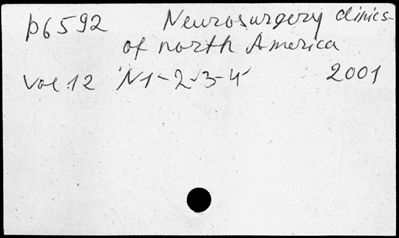 p6592 Neurosurgery clinics
of north America
Vol 12 N1-2-3-4 2001